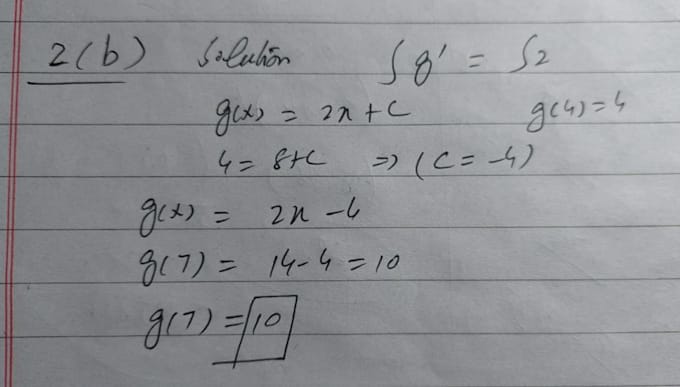 2(b) Solution ∫g' = ∫2
g(x) = 2x+c g(4)=4
4= 8+c => (c = -4)
g(x) = 2x -4
g(7) = 14-4 = 10
g(7) = 10